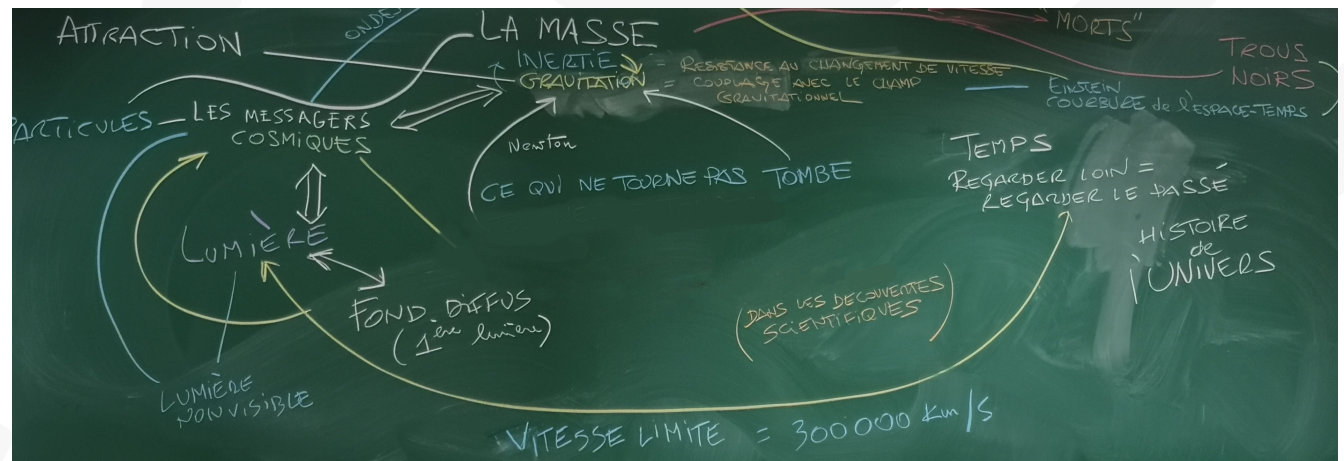 ATTRACTION
ONDES
LA MASSE
"MORTS"
TROUS
NOIRS
INERTIE = RESISTANCE AU CHANGEMENT DE VITESSE
GRAVITATION = COUPLAGE AVEC LE CHAMP
GRAVITATIONNEL
EINSTEIN
COURBURE de l'ESPACE-TEMPS
PARTICULES
LES MESSAGERS
COSMIQUES
Newton
CE QUI NE TOURNE PAS TOMBE
TEMPS
REGARDER LOIN =
REGARDER LE PASSÉ
HISTOIRE
de
l'UNIVERS
LUMIÈRE
FOND DIFFUS
(1ère lumière)
(DANS LES DECOUVERTES
SCIENTIFIQUES)
LUMIÈRE
NON VISIBLE
VITESSE LIMITE = 300000 Km/S